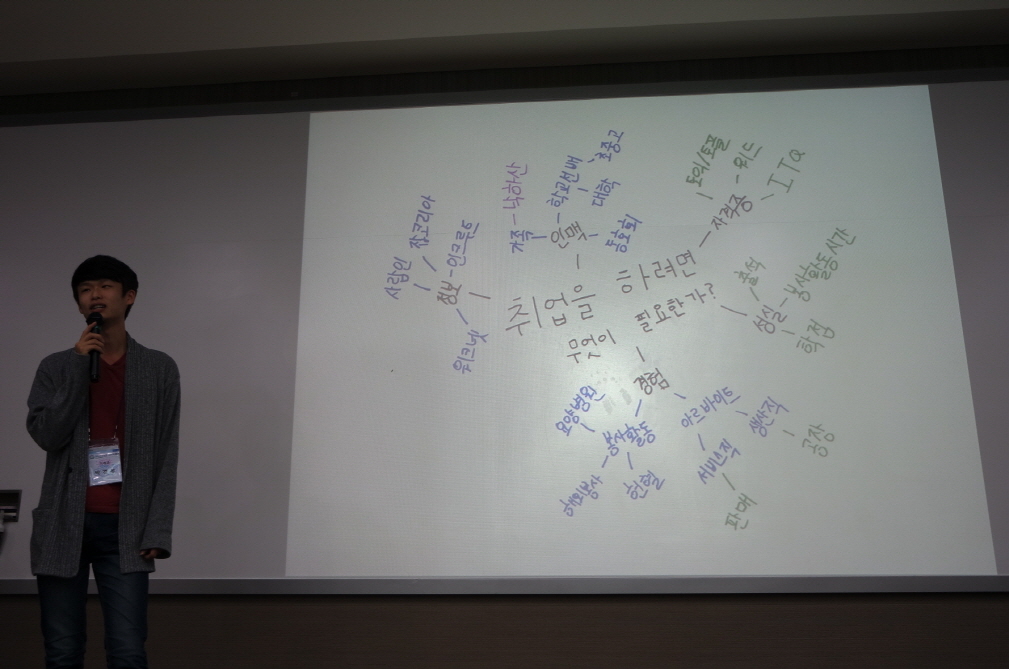 취업을 하려면
무엇이 필요한가?
인맥
가족 - 낙하산
학교선배
초중고
대학
동호회
자격증
토익/토플
워드
ITQ
성실
출석
봉사활동시간
학점
경험
봉사활동
요양병원
해외봉사
헌혈
아르바이트
생산직
공장
서비스직
판매
정보
사람인
잡코리아
인크루트
워크넷